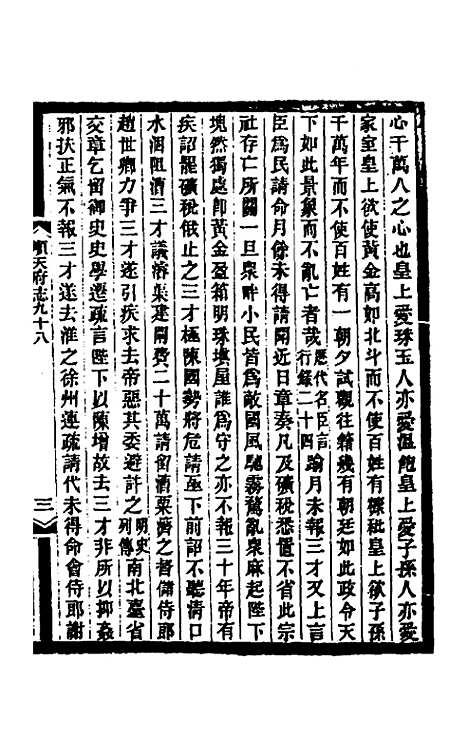 心千萬人之心也皇上愛珠玉人亦愛溫飽皇上愛子孫人亦愛
家室皇上欲使黃金高如北斗而不使百姓有糠秕皇上欲子孫
千萬年而不使百姓有一朝夕試觀往籍幾有朝廷如此政令天
下如此景象而不亂亡者哉歷代名臣言行錄二十四踰月未報三才又上言
臣爲民請命月餘未得請聞近日章奏凡及礦稅悉置不省此宗
社存亡所關一旦衆畔小民皆爲敵國風馳霧騖亂衆麻起陛下
塊然獨處卽黃金盈箱明珠塡屋誰爲守之亦不報三十年帝有
疾詔罷礦稅俄止之三才極陳國勢將危請亟下前詔不聽淸口
水涸阻漕三才議濬渠建閘費二十萬請留漕粟濟之督儲侍郎
趙世卿力爭三才遂引疾求去帝惡其委避許之明史列傳南北臺省
交章乞留御史史學遷疏言陛下以陳增故去三才非所以抑姦
邪扶正氣不報三才遂去淮之徐州連疏請代未得命會侍郎謝
順天府志九十八
三